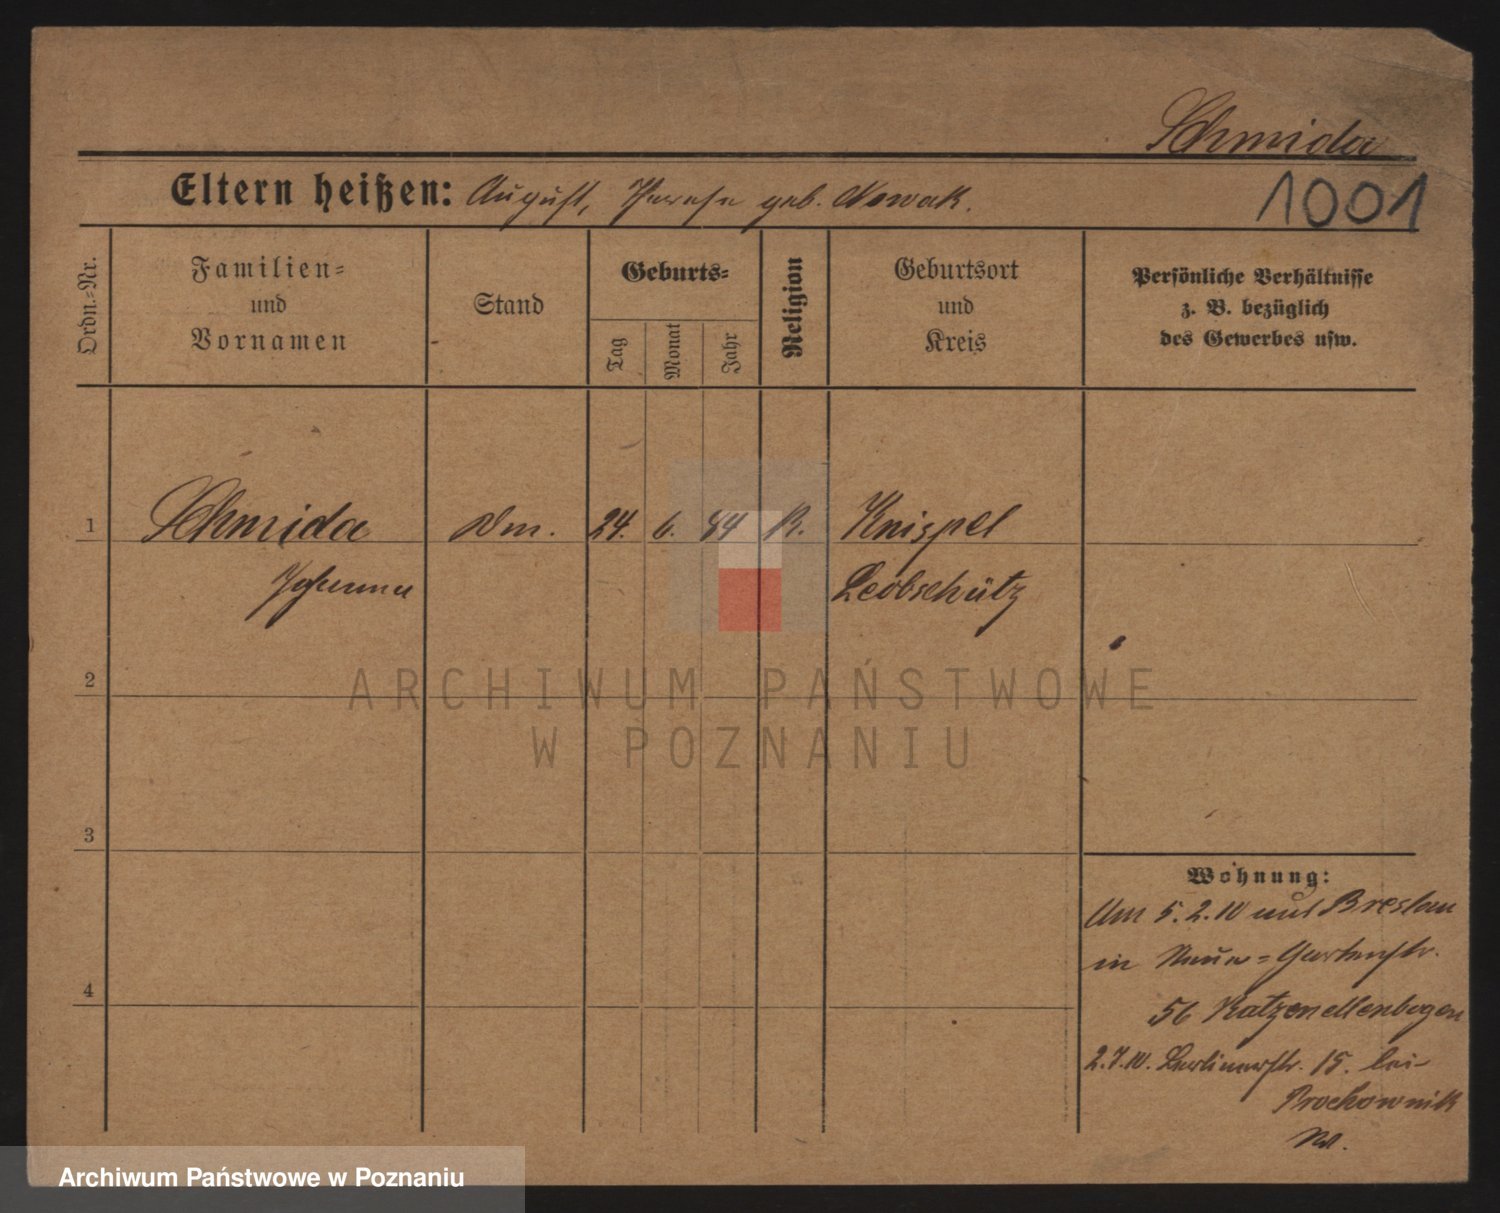 Schmida
Eltern heißen: August, Therese geb. Nowak.
1001
Ordn.-Nr.
Familien-
und
Vornamen
Stand
Geburts-
Tag
Monat
Jahr
Religion
Geburtsort
und
Kreis
Persönliche Verhältnisse
z. B. bezüglich
des Gewerbes usw.
1 Schmida Dm. 24. 6. 84 R. Knispel
Johanna Leobschütz
2
ARCHIWUM PAŃSTWOWE
W POZNANIU
3
Wohnung:
Am 5.2.10 aus Breslau
in Neue-Gartenstr.
4
56 Katzenellenbogen
2.7.10. Berlinerstr. 15. bei
Prochownik
Archiwum Państwowe w Poznaniu